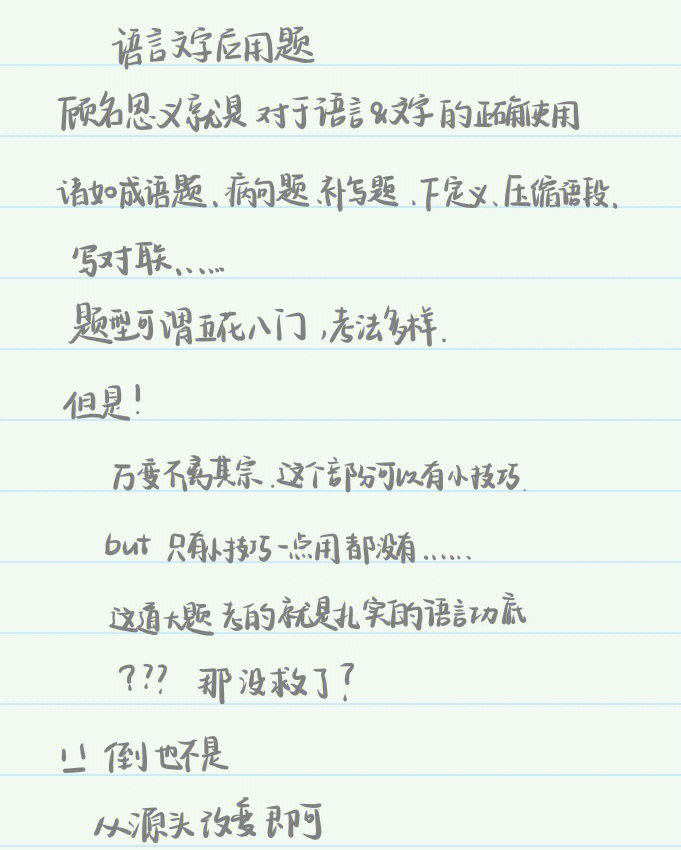 语言文字应用题
顾名思义就是 对于语言&文字的正确使用
诸如成语题、病句题、补写题、下定义、压缩语段、
写对联、、……
题型可谓五花八门，考法多样.
但是！
万变不离其宗.这个部分可以有小技巧.
but 只有小技巧一点用都没有……
这道大题 考的就是扎实的语言功底
??? 那没救了?
!! 倒也不是
从源头改变即可